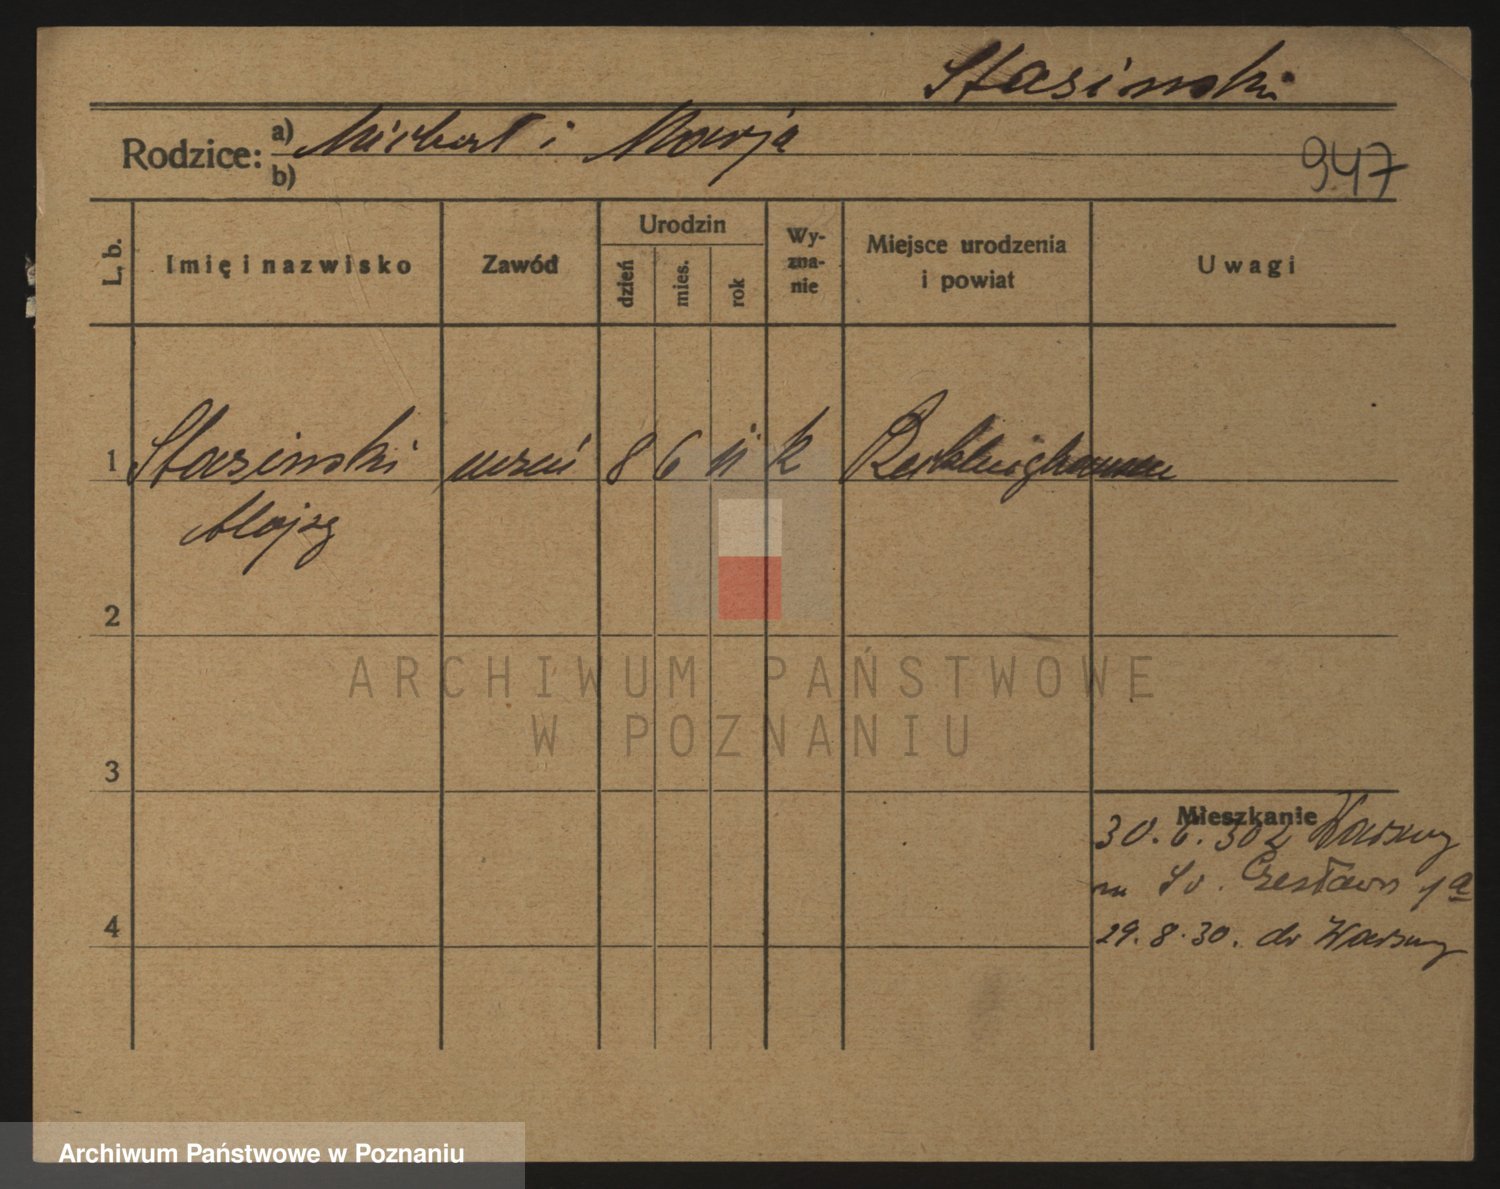 Stasinski
Rodzice:
a) Michał i Marja
b)
947
L. b.
Imię i nazwisko
Zawód
Urodzin
dzień
mies.
rok
Wy-
zna-
nie
Miejsce urodzenia
i powiat
Uwagi
1 Stasinski uczeń 8 6 11 k Recklinghausen
Alojzy
2
3
4
Mieszkanie
30.6.30 z Warszawy
Św. Czesława
29.8.30. do Warszawy
ARCHIWUM PAŃSTWOWE
W POZNANIU
Archiwum Państwowe w Poznaniu